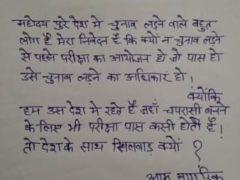 महोदय पुरे देश मे चुनाव लड़ने वाले बहुत
लोग है मेरा निवेदन है कि क्यों न चुनाव लड़ने
से पहले परीक्षा का आयोजन हो जो पास हो
उसे चुनाव लड़ने का अधिकार हो।
क्योंकि
हम उस देश मे रहते है जहाँ चपरासी बनने
के लिए भी परीक्षा पास करनी होती है।
तो देश के साथ खिलवाड़ क्यों ?
आम नागरिक